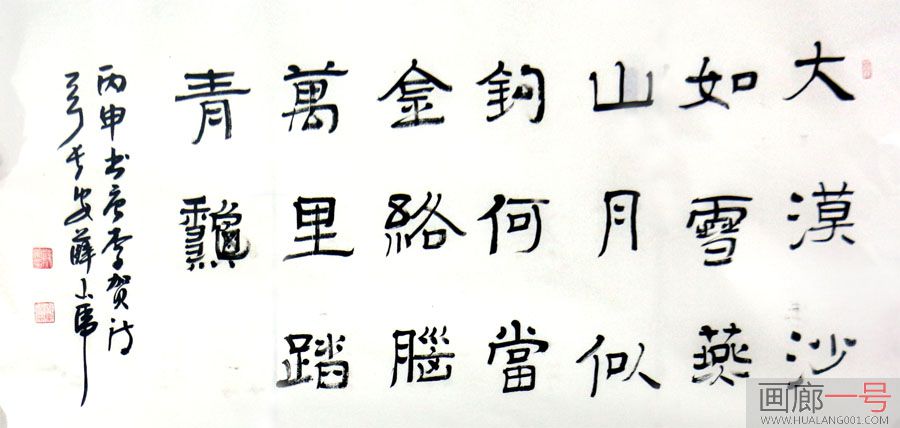 大漠沙
如雪燕
山月似
鉤何當
金絡腦
萬里踏
青龝
丙申书唐李賀诗
长安薛小
画廊一号
WWW.HUALANG001.COM